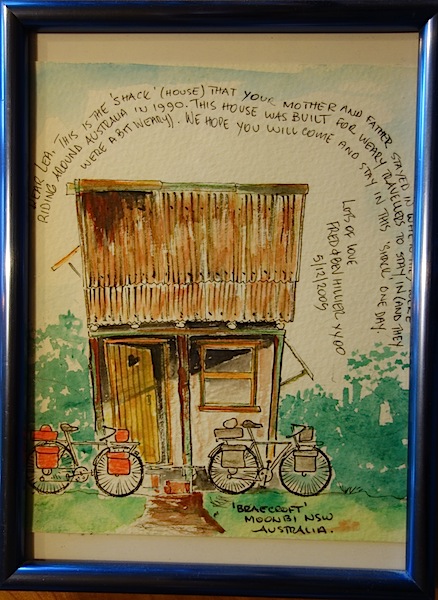 EAR LEA. THIS IS THE 'SHACK' (HOUSE) THAT YOUR MOTHER AND FATHER STAYED IN
RIDING AROUND AUSTRALIA IN 1990. THIS HOUSE WAS BUILT FOR WEARY TRAVELLERS TO STAY IN (AND THEY
WERE A BIT WEARY)). WE HOPE YOU WILL COME AND STAY IN THIS 'SHACK' ONE DAY.
LOTS OF LOVE
FRED & BEV HILLIER XXOO
5/12/2009
'BRAECROFT'
MOONBI NSW
AUSTRALIA.